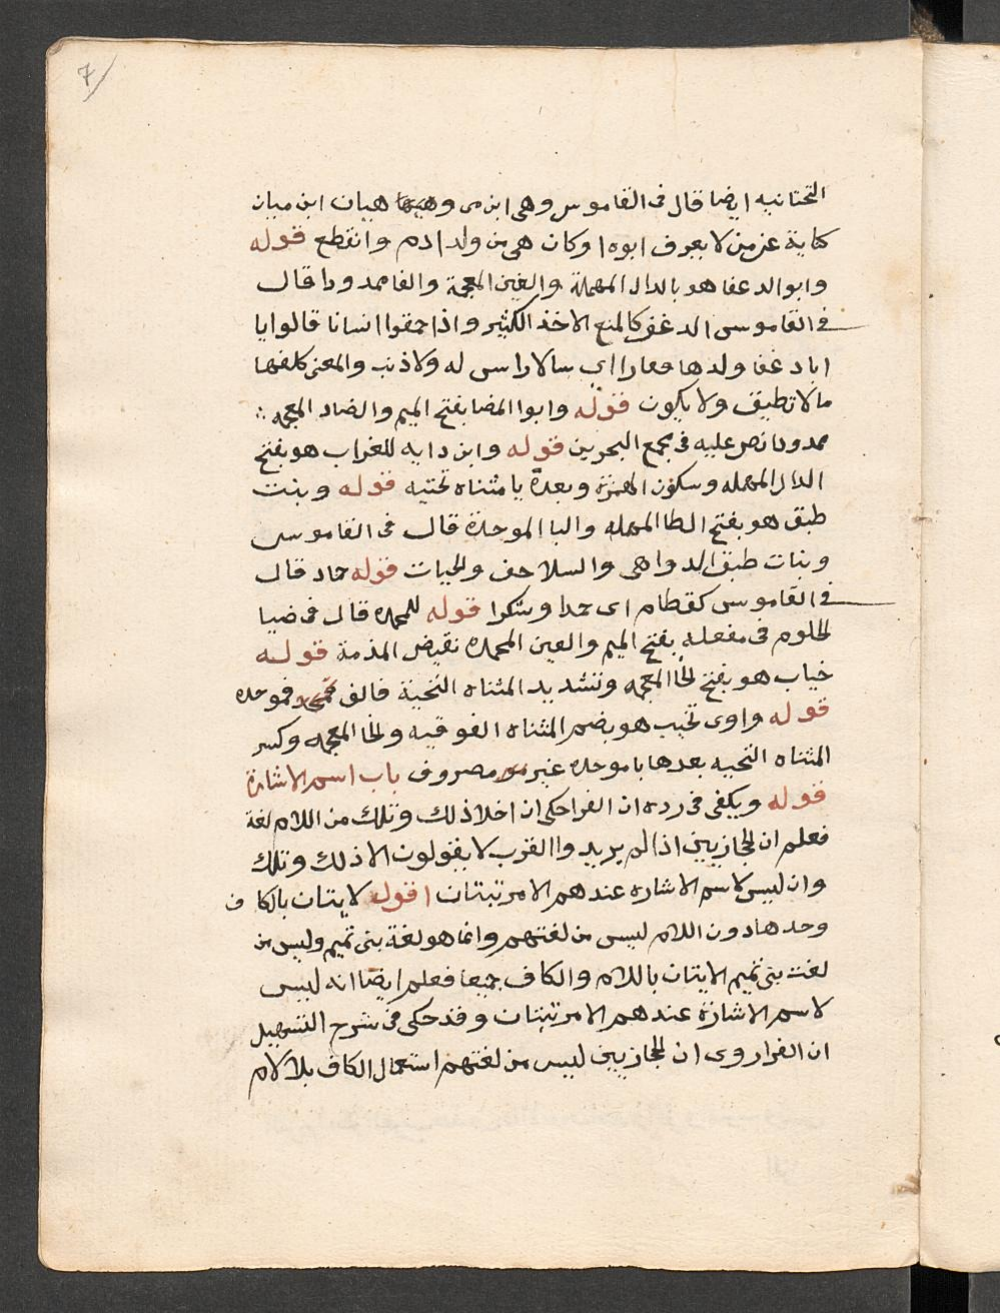 7
التحتانيه ايضا قال فى القاموس وهى ابن مى وهيان ابن ميان
كناية عن من لا يعرف ابوه او كان هى من ولد ادم وانقطع قوله
وابو الدغفا هو بالدال المهملة والغين المعجمة والفا ممدودا قال
فى القاموس الدغف كالمنع الاخذ الكثير واذا حمقوا انسانا قالوا يا
ابا دغفا ولدها فقارا اى سالا راس له ولا ذنب والمعنى كلفها
مالا تطيق ولا يكون قوله وابوا المضا بفتح الميم والضاد المعجمه
ممدودا نص عليه فى مجمع البحرين قوله وابن دايه للغراب هو بفتح
الدال المهمله وسكون الهمزة وبعدة يا مثناه تحتيه قوله وبنت
طبق هو بفتح الطا المهمله والبا الموحدة قال فى القاموس
وبنات طبق الدواهى والسلاحف والحيات قوله حماد قال
فى القاموس كقطام اى حمدا وشكرا قوله للمحمده قال فى ضيا
الحلوم فى مفعله بفتح الميم والعين المحمده نقيض المذمة قوله
خياب هو بفتح الخا المعجمه وتشديد المثناه التحتية فالف فموحده
قوله وادى تخيب هو بضم المثناه الفوقيه والخا المعجمه وكسر
المثناه التحيه بعدها با موحده غير مصروف باب اسم الاشارة
قوله ويكفى فى رده ان الفرا حكى ان اخلا ذلك وتلك من اللام لغة
فعلم ان الحجازيين اذا لم يريدوا القرب لا يقولون الا ذلك وتلك
وان ليس لاسم الاشاره عندهم الا مرتبتان اقول الايتان بالكاف
وحدها دون اللام ليس من لغتهم وانما هو لغة بنى تميم وليس من
لغت بنى تميم الايتان باللام والكاف جميعا فعلم ايضا انه ليس
لاسم الاشارة عندهم الا مرتبتان وقد حكى فى شرح التسهيل
ان الفرا روى ان الحجازيين ليس من لغتهم استعمال الكاف بلا لام